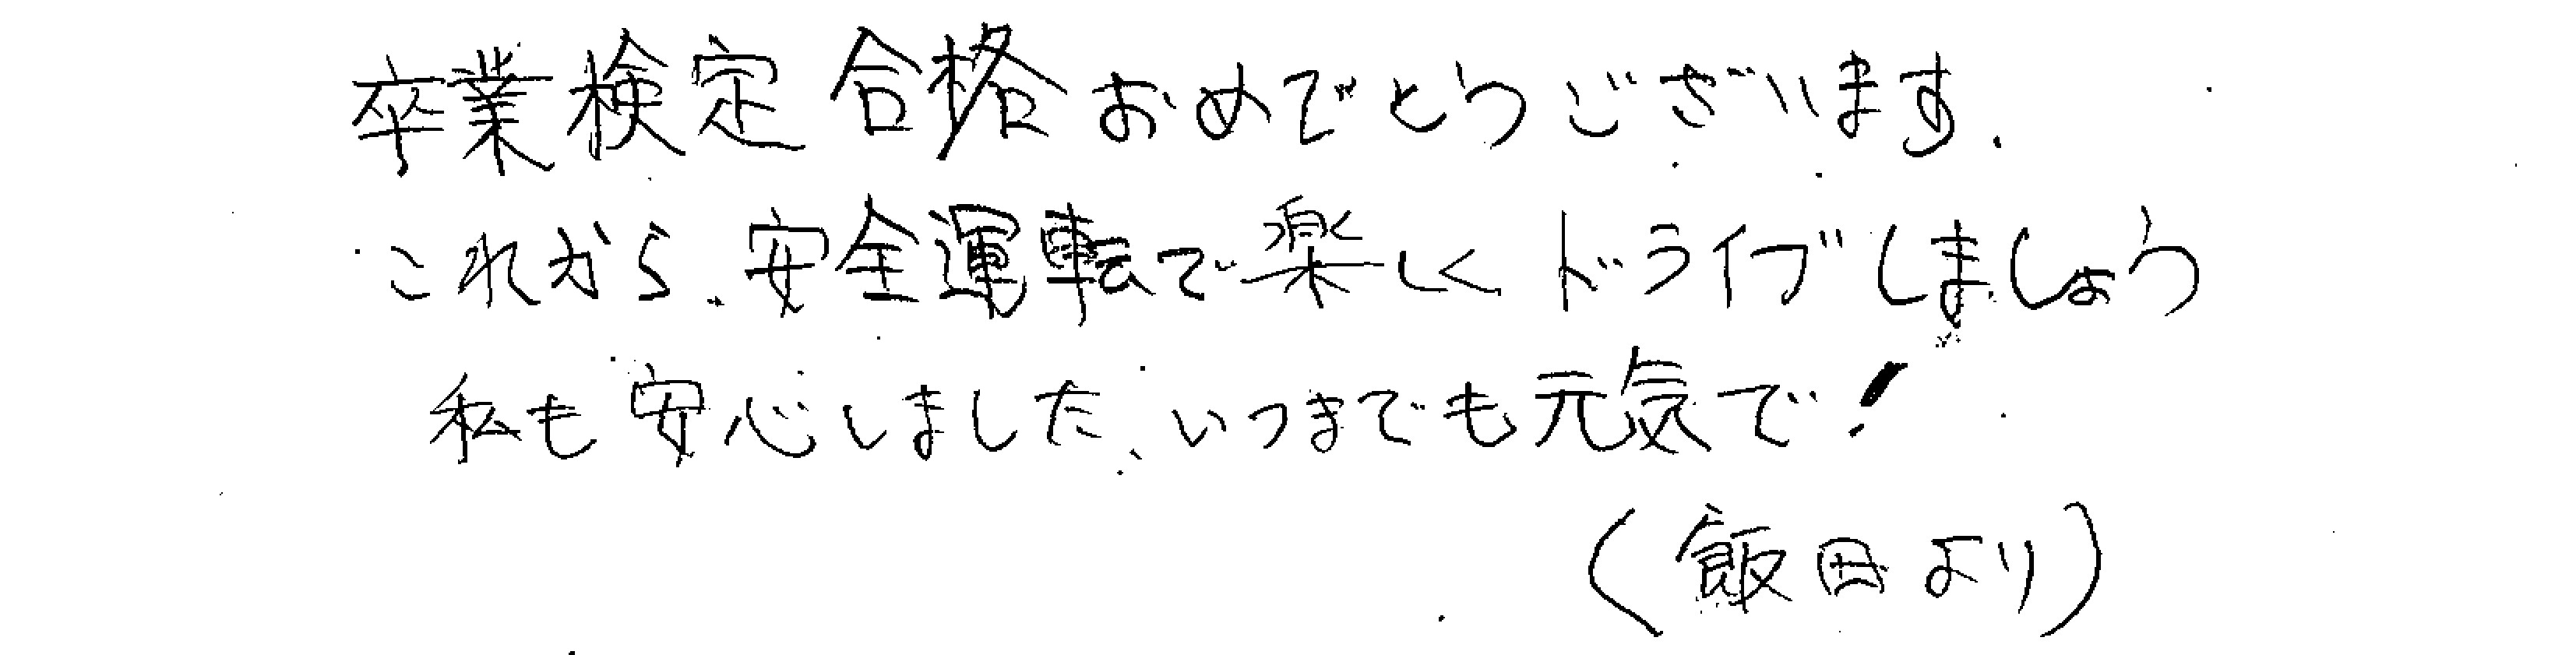 卒業検定合格おめでとうございます.
これから、安全運転で楽しくドライブしましょう
私も安心しました、いつまでも元気で!
(飯田より)